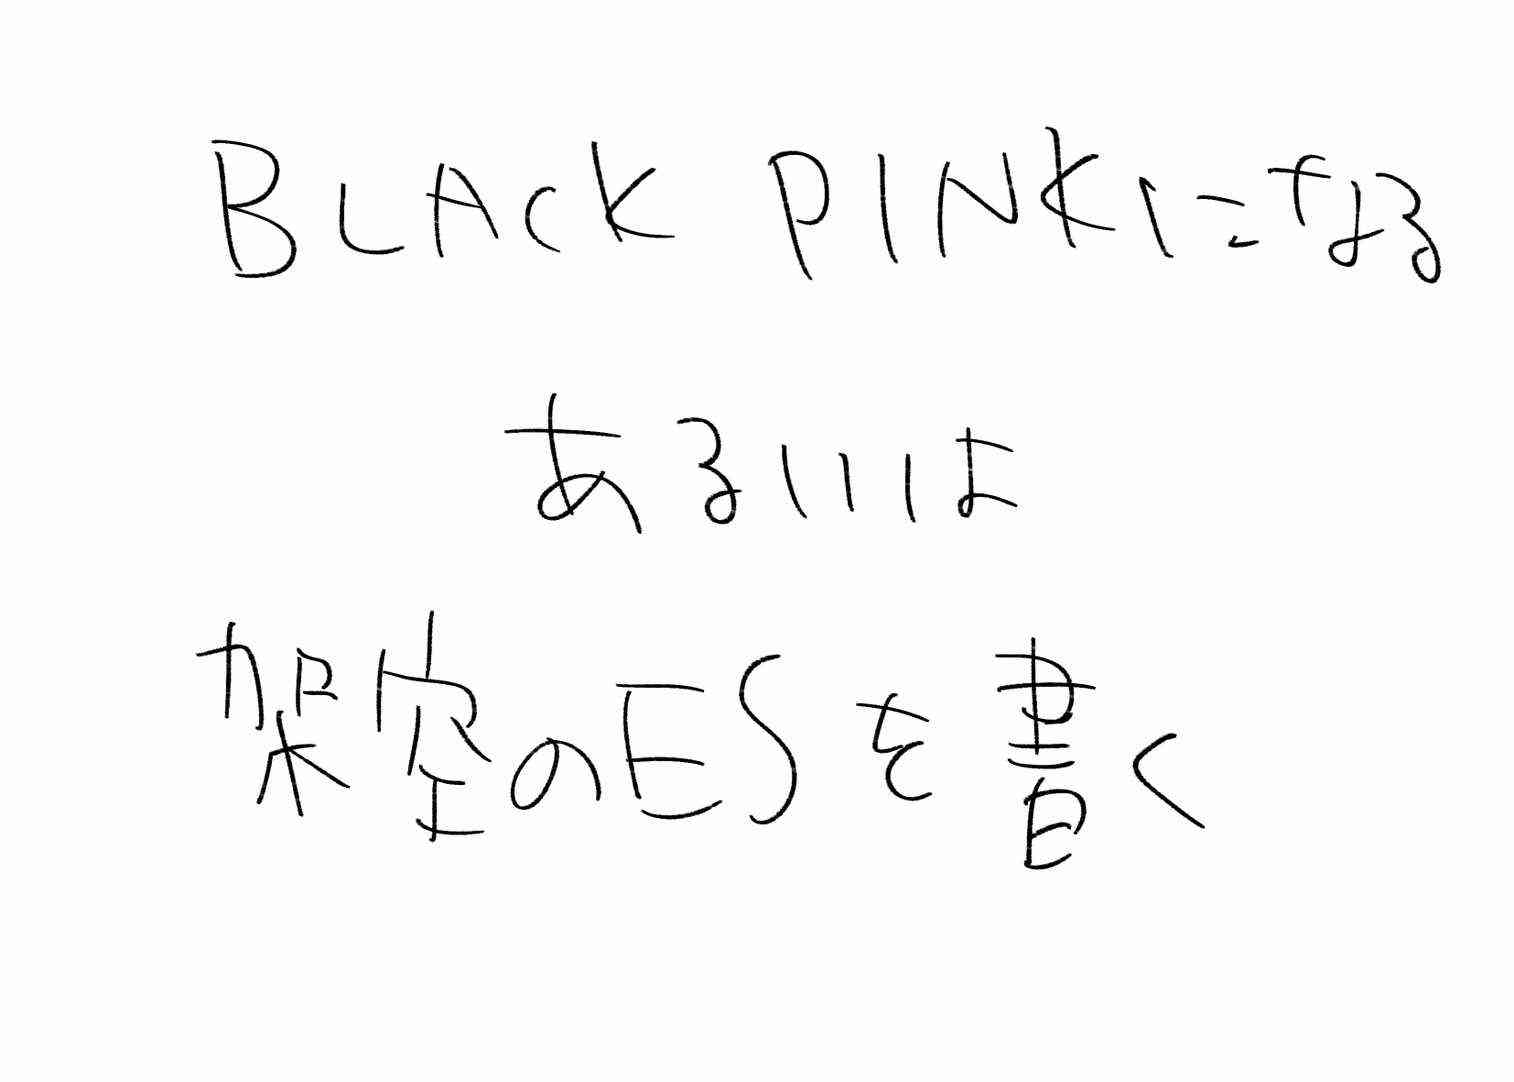 BLACK PINKになる
あるいは
架空のESを書く